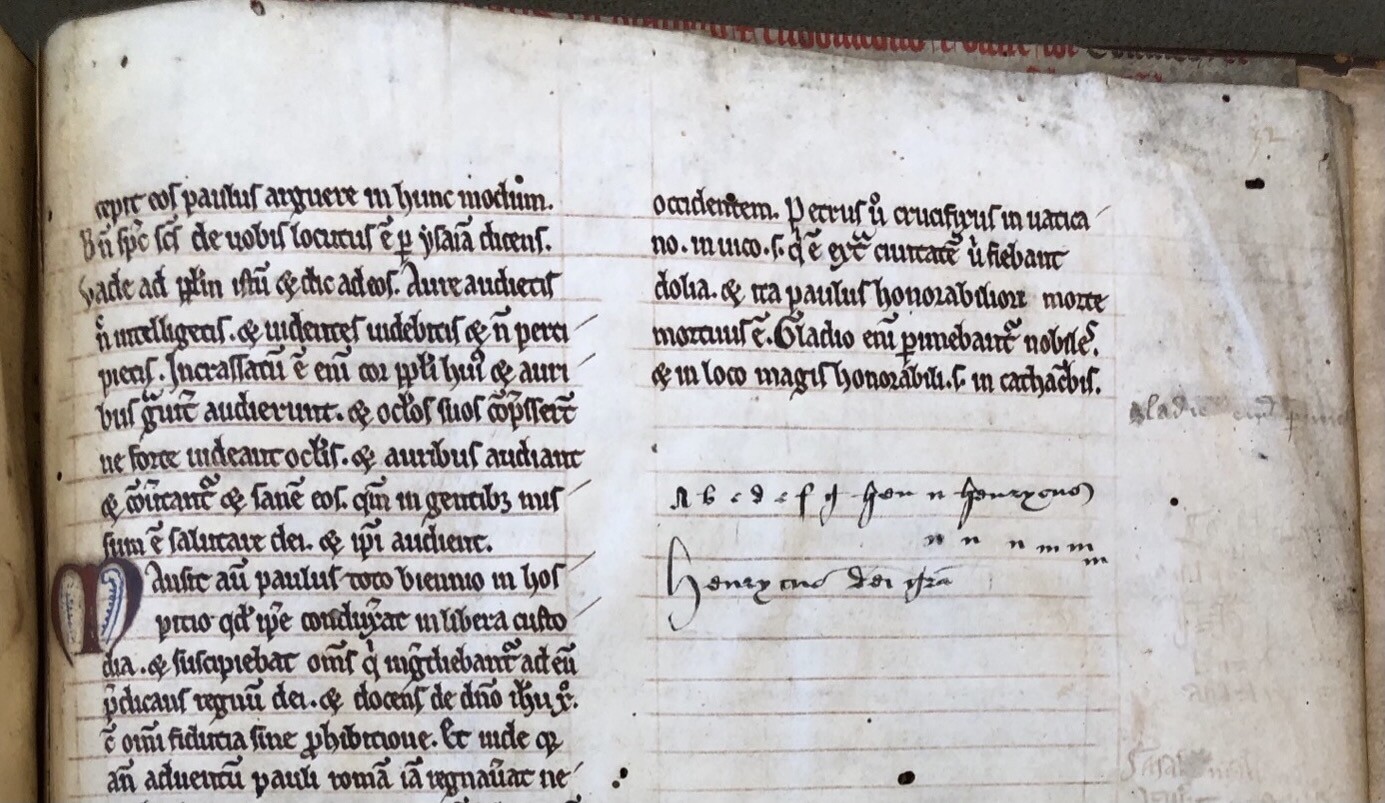 cepit eos paulus arguere in hunc modum.
Bn̄ sp̄c sc̄s de uobis locutus ē ꝑ ysaiā dicens.
Vade ad pp̄lm istū & dic ad eos. Aure audietis
& n̄ intelligetis. & uidentes uidebitis & n̄ perci
pietis. Incrassatū ē eni̅ cor pp̄li hui᷒ & auri
bus g̃uit̃ audierunt. & oc̄los suos cōp̃sser̄t
ne forte uideant oc̄lis. & auribus audiant
& cōu̅tant᷑ & sanē eos. qm̄ in gentibꝫ mis
sum ē salutare dei. & ip̄i audient.
Mansit aū paulus toto biennio in hos
pitio qd̄ ip̄e conduxerat in libera custo
dia. & suscipiebat om̄s q̇ ing̃diebant᷑ ad eū
p̃dicans regnū dei. & docens de dn̄o ih̄u xp̄o.
c̄ om̄i fiducia sine ꝓhibitione. Et uide qꝫ
an̄ aduentū pauli romā iā regnau̅at ne
occidentem. Petrus u̇ crucifixus in uatica
no. in uico. s. q̇ ē ext̃ ciuitatē u̇ fiebant
dolia. & ita paulus honorabiliori morte
mortuus ē. Gladio eni̅ puniebant᷑ nobiles.
& in loco magis honorabili. s. in cathac̄bis.
A b c d e f g hen n henrycus
n n n m m m
Henrycus dei gr̄a
Gladio eni̅